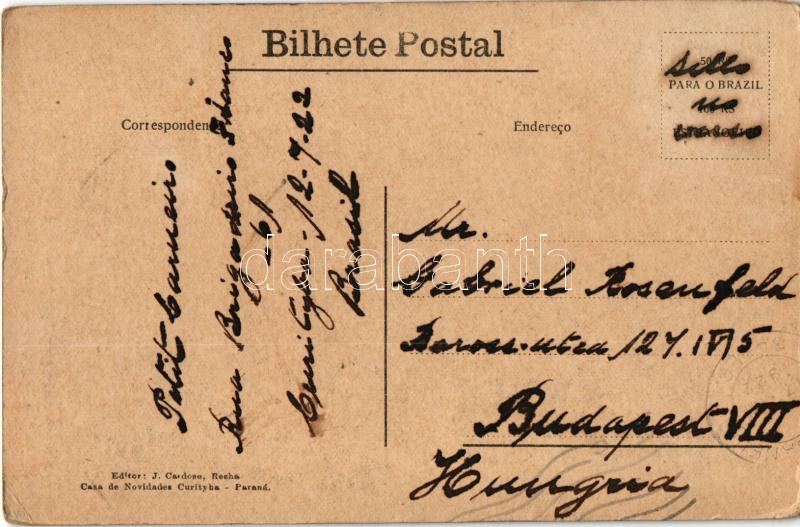 Bilhete Postal
Correspondenc
Endereço
50 Rs
PARA O BRAZIL
Sello
no
Petit Carneiro
Rua Brigadeiro Franco
61
Curityba - 12-7-22
Brasil
Mr.
Gabriel Rosenfeld
Baross-utca 127. IV/5
Budapest VIII
Hungria
Editor: J. Cardoso, Rocha
Casa de Novidades Curityba - Paraná.
darabanth